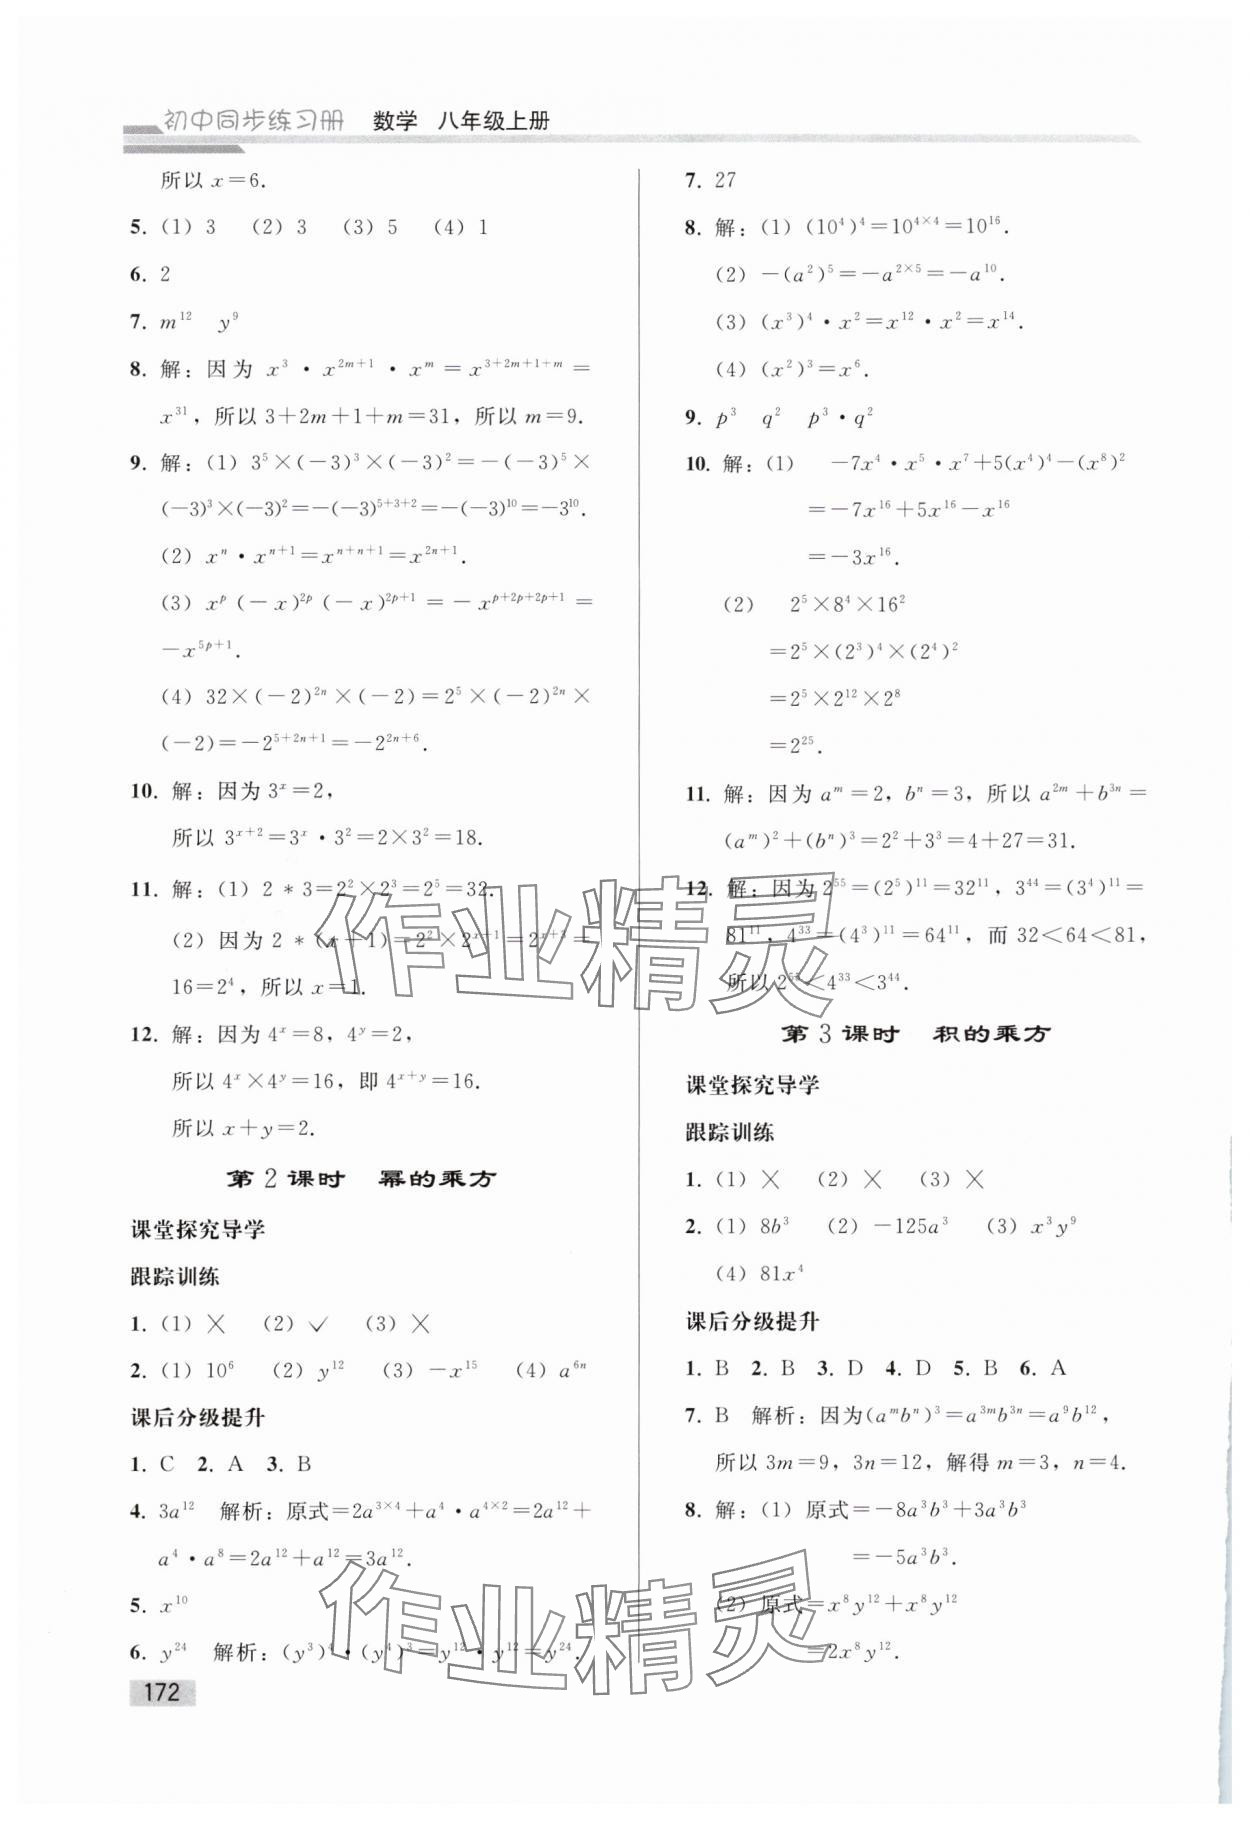 初中同步练习册 数学 八年级上册
所以 x＝6.
5. (1) 3 (2) 3 (3) 5 (4) 1
6. 2
7. m¹² y⁹
8. 解：因为 x³·x²ᵐ⁺¹·xᵐ＝x³⁺²ᵐ⁺¹⁺ᵐ＝
x³¹，所以 3＋2m＋1＋m＝31，所以 m＝9.
9. 解：(1) 3⁵×(－3)³×(－3)²＝－(－3)⁵×
(－3)³×(－3)²＝－(－3)⁵⁺³⁺²＝－(－3)¹⁰＝－3¹⁰.
(2) xⁿ·xⁿ⁺¹＝xⁿ⁺ⁿ⁺¹＝x²ⁿ⁺¹.
(3) xᵖ(－x)²ᵖ(－x)²ᵖ⁺¹＝－xᵖ⁺²ᵖ⁺²ᵖ⁺¹＝
－x⁵ᵖ⁺¹.
(4) 32×(－2)²ⁿ×(－2)＝2⁵×(－2)²ⁿ×
(－2)＝－2⁵⁺²ⁿ⁺¹＝－2²ⁿ⁺⁶.
10. 解：因为 3ˣ＝2，
所以 3ˣ⁺²＝3ˣ·3²＝2×3²＝18.
11. 解：(1) 2＊3＝2²×2³＝2⁵＝32.
(2) 因为 2＊(x＋1)＝2²×2ˣ⁺¹＝2ˣ⁺³＝
16＝2⁴，所以 x＝1.
12. 解：因为 4ˣ＝8，4ʸ＝2，
所以 4ˣ×4ʸ＝16，即 4ˣ⁺ʸ＝16.
所以 x＋y＝2.
第 2 课时 幂的乘方
课堂探究导学
跟踪训练
1. (1) ╳ (2) ✓ (3) ╳
2. (1) 10⁶ (2) y¹² (3) －x¹⁵ (4) a⁶ⁿ
课后分级提升
1. C 2. A 3. B
4. 3a¹² 解析：原式＝2a³ˣ⁴＋a⁴·a⁴ˣ²＝2a¹²＋
a⁴·a⁸＝2a¹²＋a¹²＝3a¹².
5. x¹⁰
6. y²⁴ 解析：(y³)⁴·(y⁴)³＝y¹²·y¹²＝y²⁴.
172
7. 27
8. 解：(1) (10⁴)⁴＝10⁴ˣ⁴＝10¹⁶.
(2) －(a²)⁵＝－a²ˣ⁵＝－a¹⁰.
(3) (x³)⁴·x²＝x¹²·x²＝x¹⁴.
(4) (x²)³＝x⁶.
9. p³ q² p³·q²
10. 解：(1) －7x⁴·x⁵·x⁷＋5(x⁴)⁴－(x⁸)²
＝－7x¹⁶＋5x¹⁶－x¹⁶
＝－3x¹⁶.
(2) 2⁵×8⁴×16²
＝2⁵×(2³)⁴×(2⁴)²
＝2⁵×2¹²×2⁸
＝2²⁵.
11. 解：因为 aᵐ＝2，bⁿ＝3，所以 a²ᵐ＋b³ⁿ＝
(aᵐ)²＋(bⁿ)³＝2²＋3³＝4＋27＝31.
12. 解：因为 2⁵⁵＝(2⁵)¹¹＝32¹¹，3⁴⁴＝(3⁴)¹¹＝
81¹¹，4³³＝(4³)¹¹＝64¹¹，而 32＜64＜81，
所以 2⁵⁵＜4³³＜3⁴⁴.
第 3 课时 积的乘方
课堂探究导学
跟踪训练
1. (1) ╳ (2) ╳ (3) ╳
2. (1) 8b³ (2) －125a³ (3) x³y⁹
(4) 81x⁴
课后分级提升
1. B 2. B 3. D 4. D 5. B 6. A
7. B 解析：因为(aᵐbⁿ)³＝a³ᵐb³ⁿ＝a⁹b¹²，
所以 3m＝9，3n＝12，解得 m＝3，n＝4.
8. 解：(1) 原式＝－8a³b³＋3a³b³
＝－5a³b³.
(2) 原式＝x⁸y¹²＋x⁸y¹²
＝2x⁸y¹².
作业精灵
作业精灵